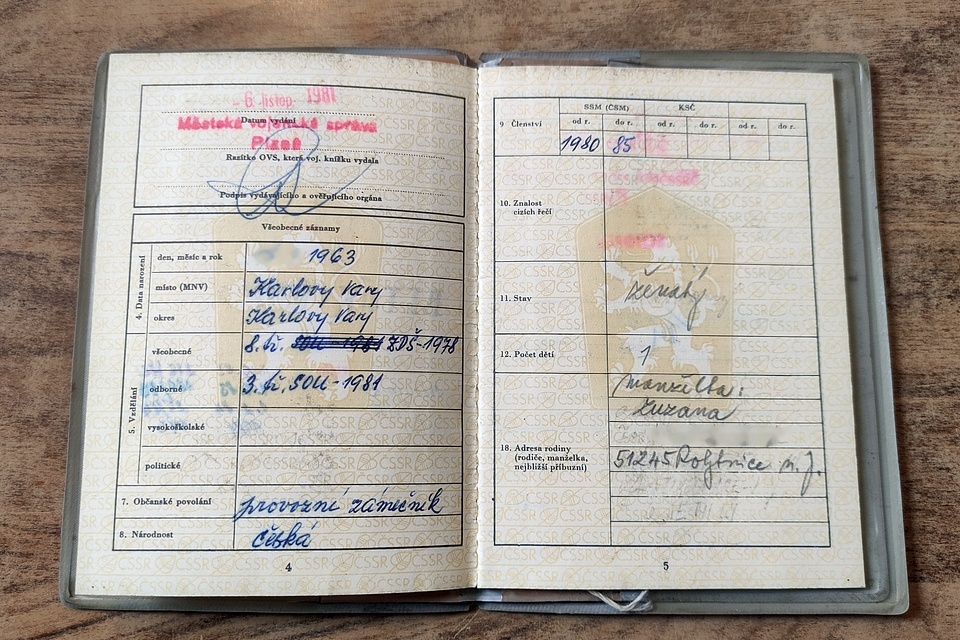 - 6. listop. 1981
Datum vydání
Městská vojenská správa
Plzeň
Razítko OVS, která voj. knížku vydala
Podpis vydávajícího a ověřujícího orgána
Všeobecné záznamy
4. Data narození
den, měsíc a rok 1963
místo (MNV) Karlovy Vary
okres Karlovy Vary
5. Vzdělání
všeobecné 8. tř. ZDŠ-1978
odborné 3. tř. SOU-1981
vysokoškolské
politické
7. Občanské povolání provozní zámečník
8. Národnost česká
4
9 Členství
SSM (ČSM) KSČ
od r. do r. od r. do r. od r. do r.
1980 85
10. Znalost
cizích řečí
11. Stav ženatý
12. Počet dětí 1
18. Adresa rodiny
(rodiče, manželka,
nejbližší příbuzní)
manželka:
Zuzana
51245 Rokytnice n. J.
5